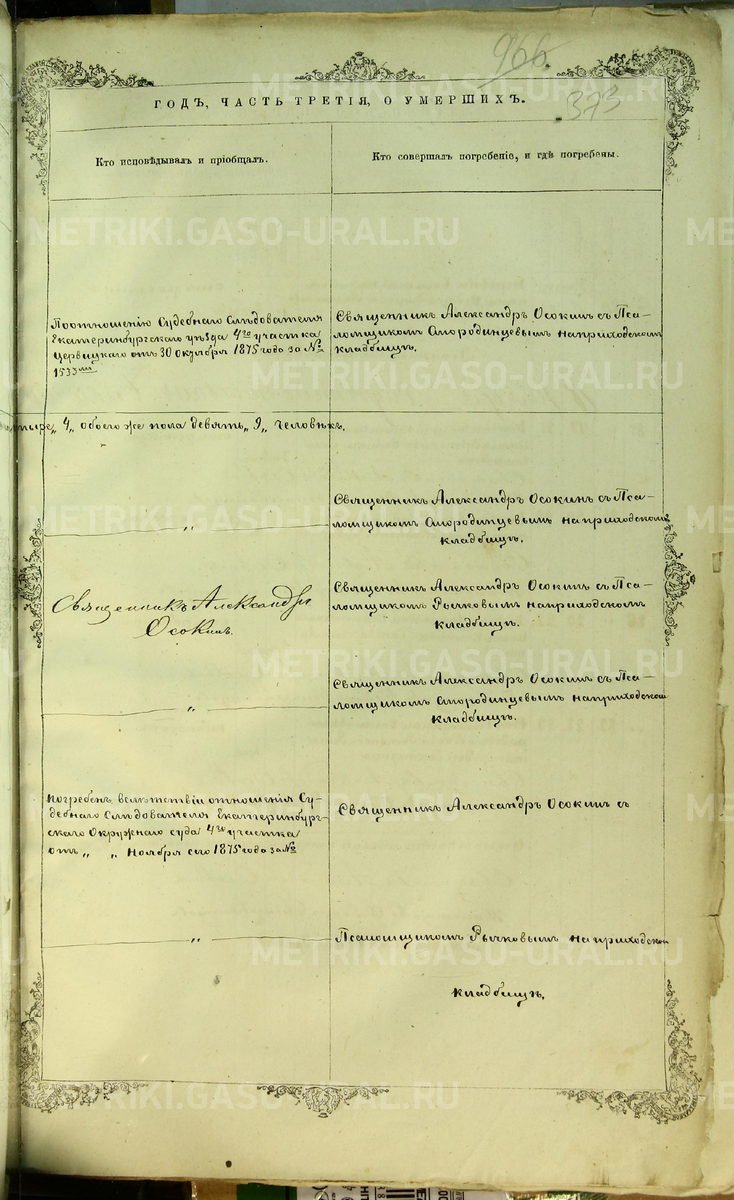 966
373
ГОДЪ, ЧАСТЬ ТРЕТІЯ, О УМЕРШИХЪ.
Кто исповѣдывалъ и пріобщалъ.
Кто совершалъ погребеніе, и гдѣ погребены.
Поотношенію Судебнаго Слѣдователя
Екатеринбургскаго уѣзда 4го участка
Цервицкаго отъ 30 октября 1875 года за №
1533мъ
Священникъ Александръ Осокинъ съ Пса-
ломщикомъ Смородинцевымъ наприходскомъ
кладбищѣ.
тыре„ 4„ обоего же пола девять„ 9„ человѣкъ.
„
Священникъ Александръ Осокинъ съ Пса-
ломщикомъ Смородинцевымъ наприходскомъ
кладбищѣ.
Священникъ Александръ
Осокинъ.
Священникъ Александръ Осокинъ съ Пса-
ломщикомъ Рычковымъ наприходскомъ
кладбищѣ.
„
Священникъ Александръ Осокинъ съ Пса-
ломщикомъ Смородинцевымъ наприходском
кладбищѣ.
погребенъ велѣтствіи отношенія Су-
дебнаго Слѣдователя Екатеринбург-
скаго Окружнаго суда 4го участка
отъ „ „ Ноября сего 1875 года за №
Священникъ Александръ Осокинъ съ
„
Псаломщикомъ Рычковымъ на приходском
кладбищѣ.
METRIKI.GASO-URAL.RU